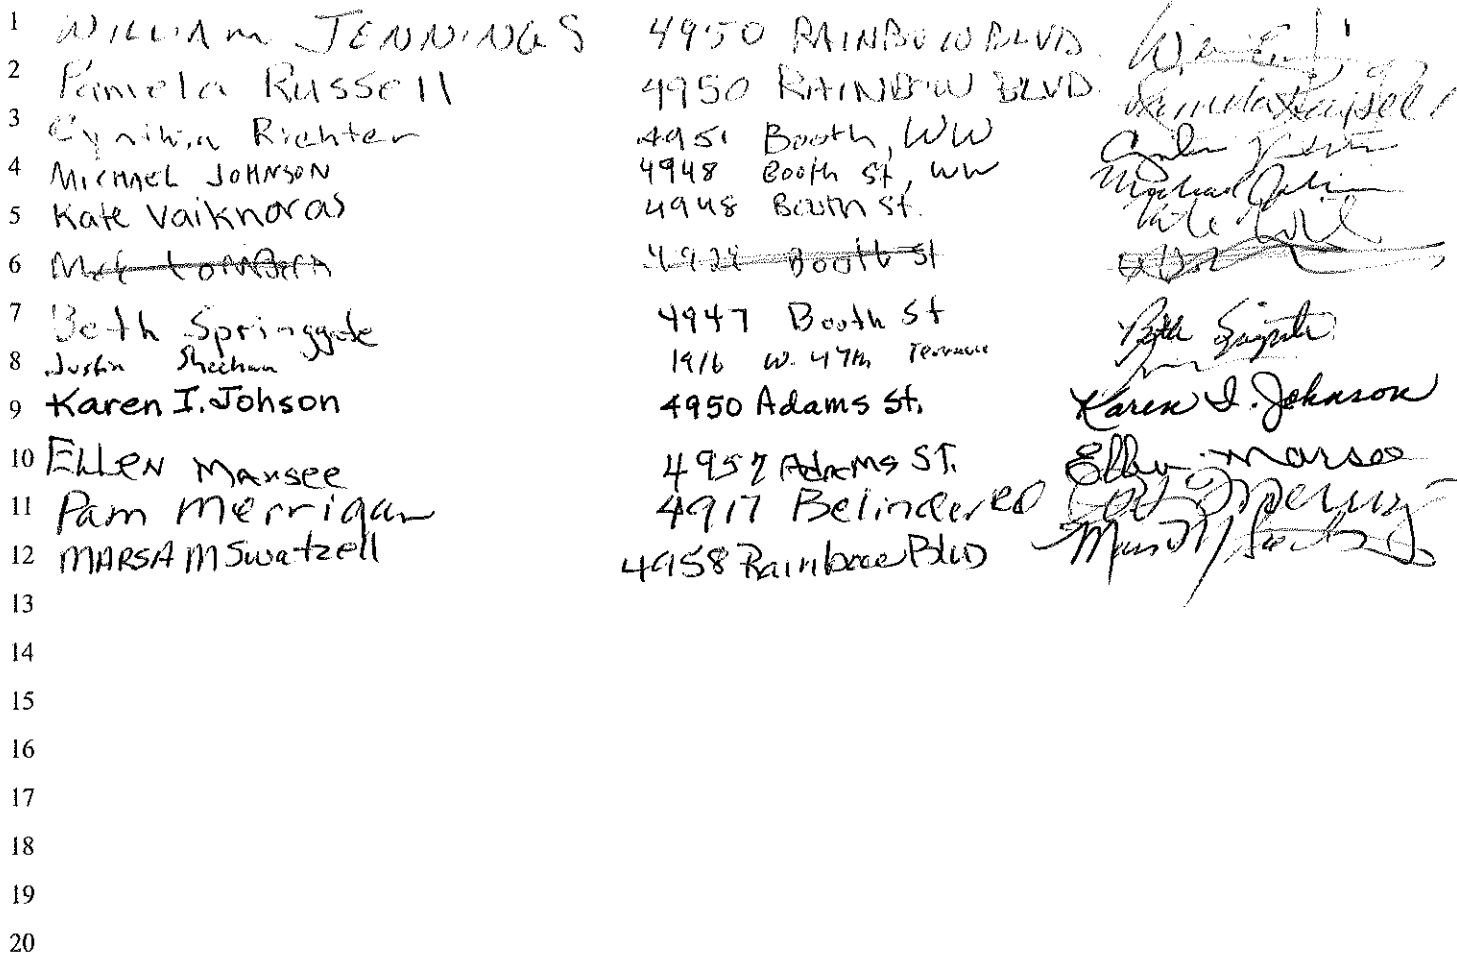 1 WILLIAM JENNINGS 4950 RAINBOW BLVD.
2 Pamela Russell 4950 RAINBOW BLVD. Pamela Russell
3 Cynthia Richter 4951 Booth, WW
4 MICHAEL JOHNSON 4948 Booth St, WW Michael John
5 Kate Vaiknoras 4948 Booth St.
6 Booth St
7 Beth Springgate 4947 Booth St Beth
8 Justin Sheehan 1916 W. 47th Terrace
9 Karen I. Johson 4950 Adams St. Karen I. Johnson
10 ELLEN Marsee 4957 Adams ST. Ellen Marsee
11 Pam Merrigan 4917 Belinder RD
12 MARSA M Swatzell 4958 Rainbow Blvd
13
14
15
16
17
18
19
20